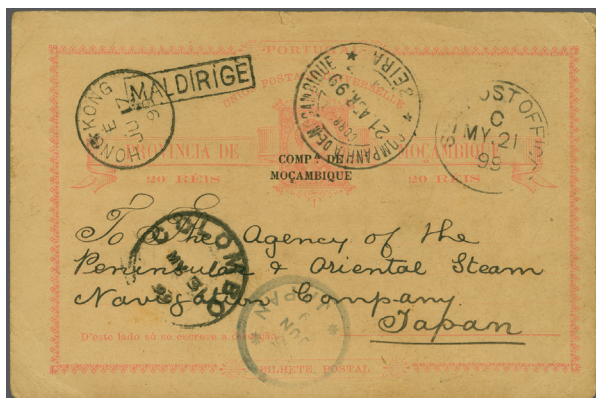 PORTUGAL
UNION POSTALE UNIVERSELLE
HONG-KONG
E
JU 17
99
MALDIRIGE
COMPANHIA DE MOÇAMBIQUE
21 ABR. 99
BEIRA
POST OFFICE
C
MY 21
99
PROVINCIA DE MOÇAMBIQUE
COMPA. DE
MOÇAMBIQUE
20 REIS 20 REIS
To The Agency of the
Peninsular & Oriental Steam
Navigation Company
Japan
COLOMBO
99
JAPAN
JUN
D'este lado só se escreve a direcção
BILHETE POSTAL